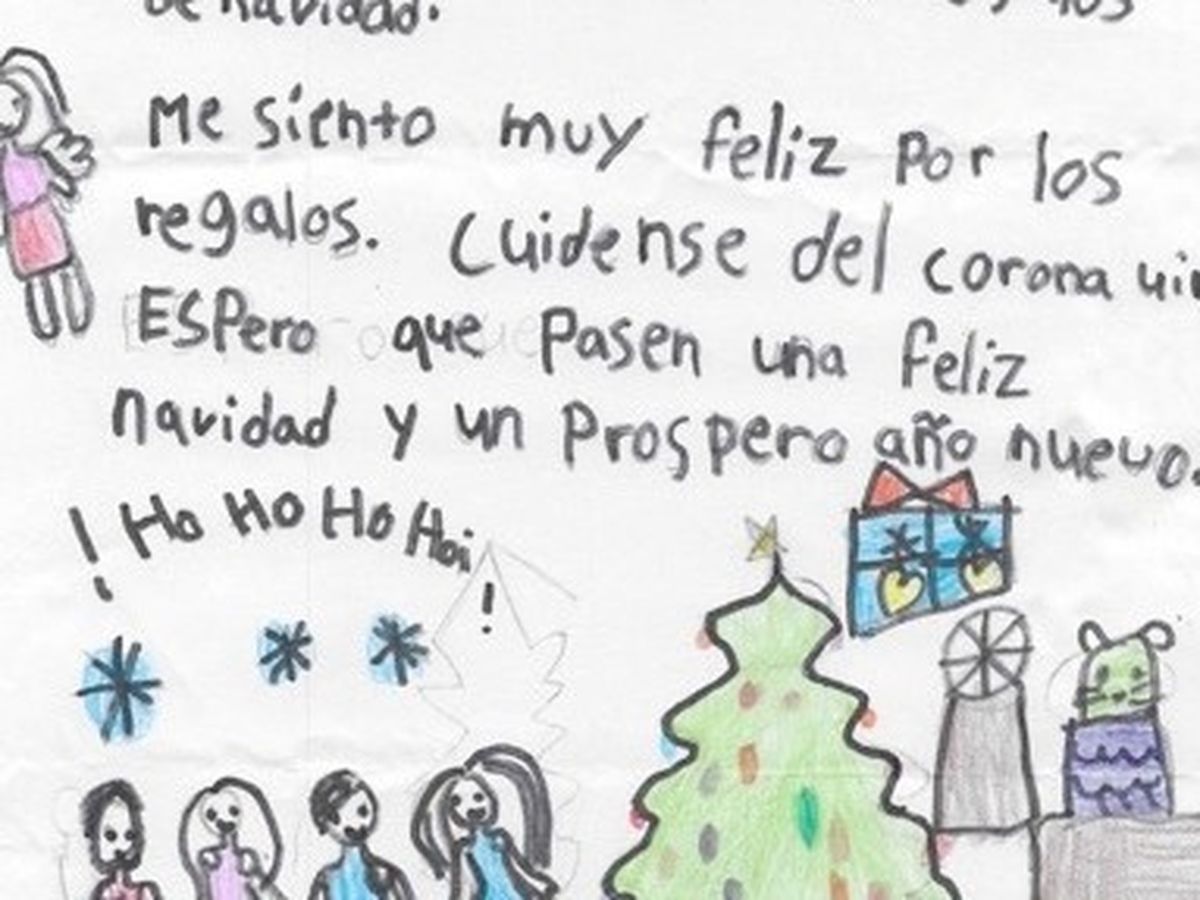 de navidad.
Me siento muy feliz por los
regalos. Cuidense del corona
Espero que Pasen una feliz
navidad y un Prospero año nuevo.
¡Ho Ho Ho Hoi!